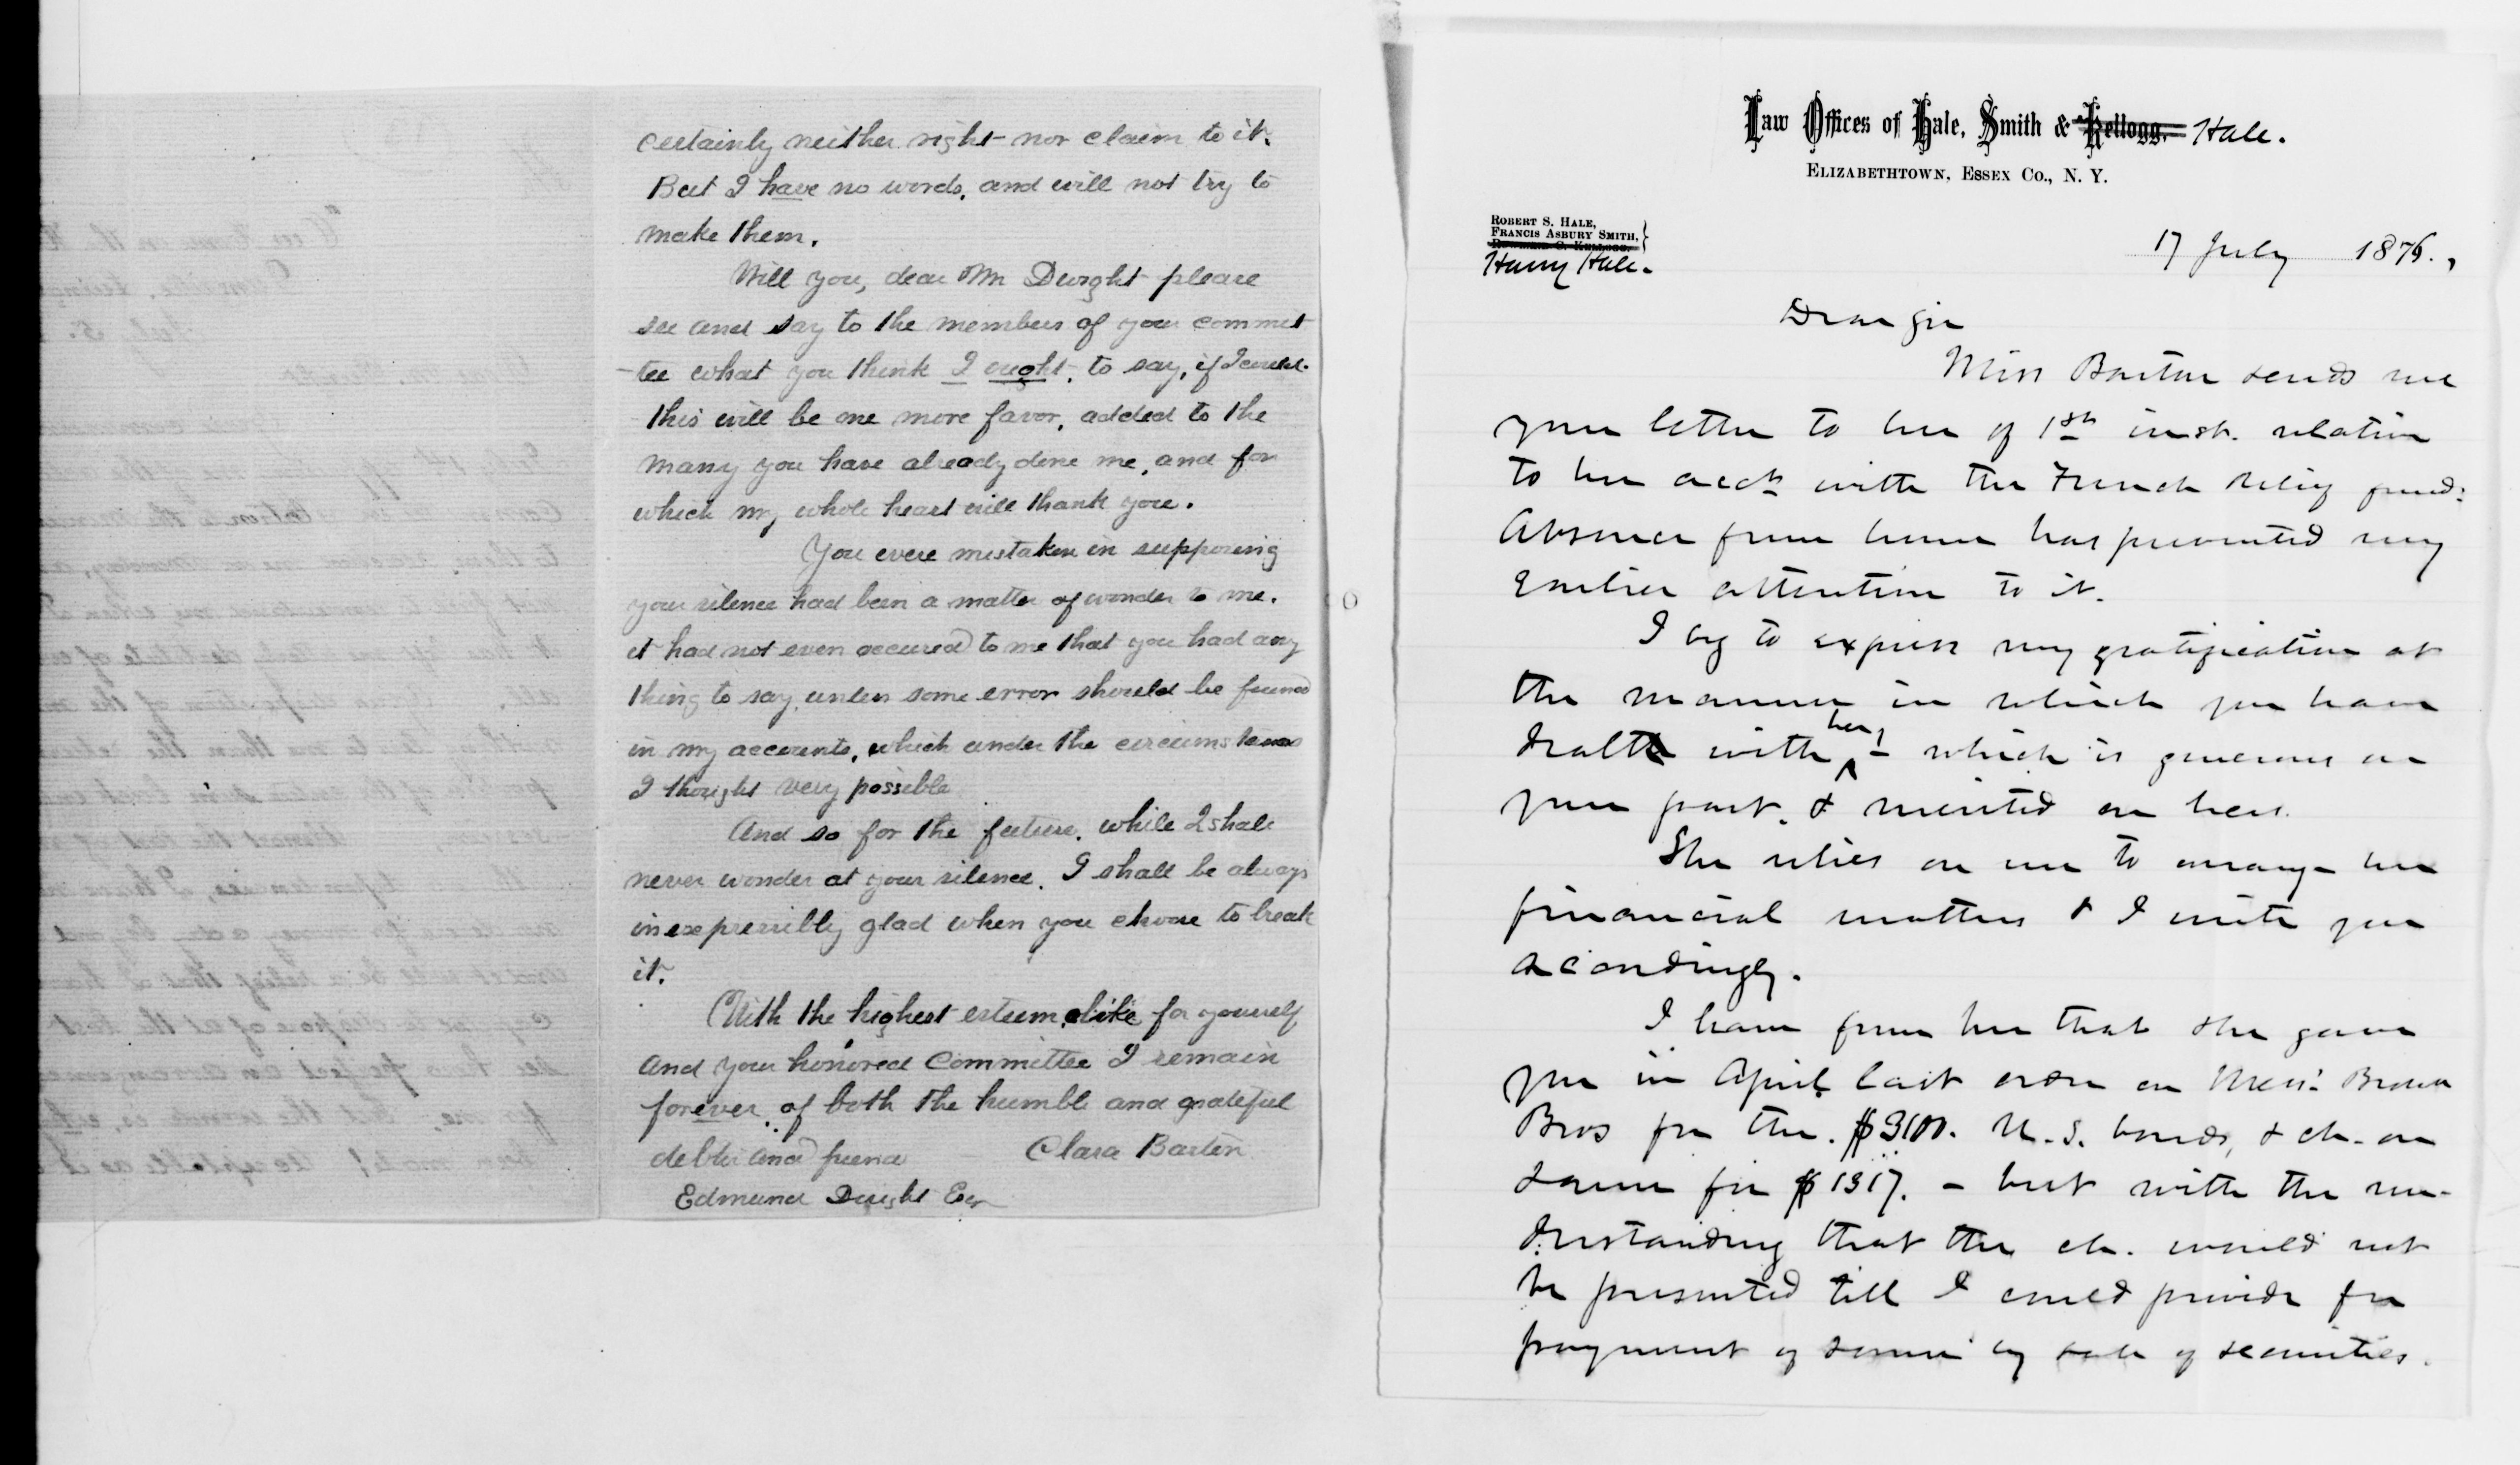 certainly neither right nor claim to it.
But I have no words, and will not try to
make them.
Will you, dear Mr Dwight please
see and say to the members of your commit
-tee what you think I ought, to say, if I could.
this will be one more favor, added to the
many you have already done me, and for
which my whole heart will thank you.
You were mistaken in supposing
your silence had been a matter of wonder to me.
it had not even occured to me that you had any
thing to say, unless some error should be found
in my accounts, which under the circumstances
I thought very possible
And so for the future, while I shall
never wonder at your silence, I shall be always
inexpressibly glad when you choose to break
it.
With the highest esteem, alike for yourself
and your honored Committee I remain
forever, of both the humble and grateful
debtor and friend Clara Barton
Edmund Dwight Esq
Law Offices of Hale, Smith & Kellogg. Hale.
Elizabethtown, Essex Co., N. Y.
Robert S. Hale,
Francis Asbury Smith,
Rowland C. Kellogg.
Harry Hale.
17 July 1876.,
Dear Sir
Miss Barton sends me
your letter to her of 1st inst. relative
to her acct with the French Relief fund:
Absence from home has prevented my
earlier attention to it.
I beg to express my gratification at
the manner in which you have
dealt with her, - which is generous on
your part, & merited on hers.
She relies on me to arrange her
financial matters & I write you
accordingly.
I learn from her that she gave
you in April last order on Messrs Brown
Bros for the $3100. U.S. bonds, & ch. on
same for $1317. - but with the un-
derstanding that the ch. would not
be presented till I could provide for
payment of same by sale of securities.